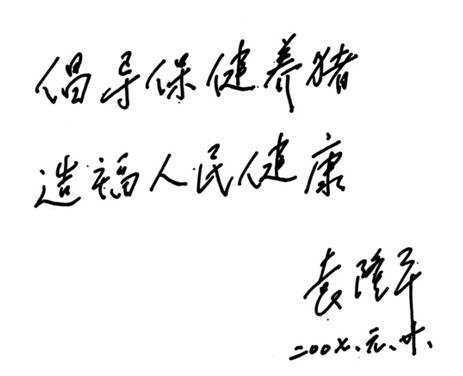 倡导保健养猪
造福人民健康
袁隆平
二００七.元.廿.